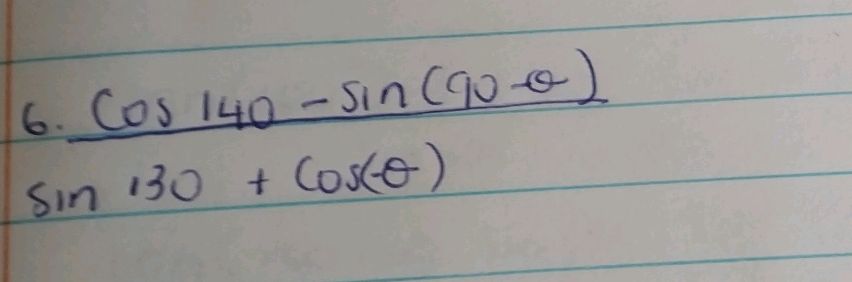 6. Cos 140 - sin(90-θ)
sin 130 + Cos(-θ)